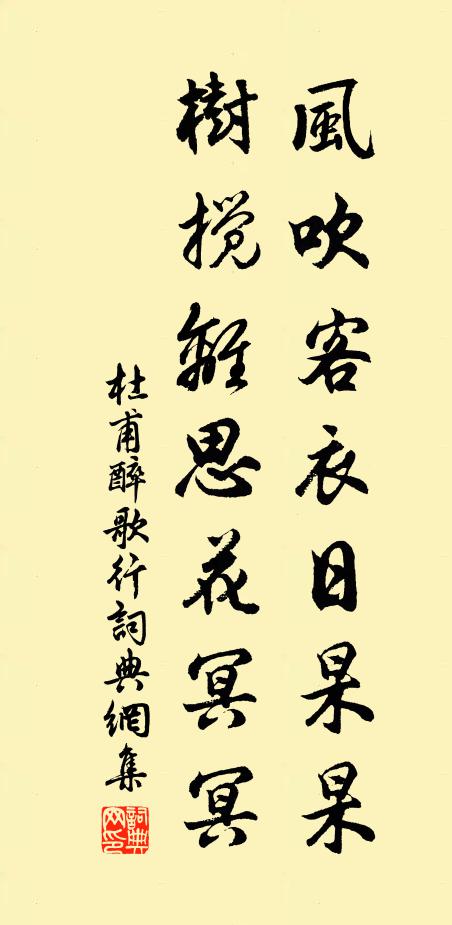 風吹客衣日杲杲
樹攪離思花冥冥
杜甫醉歌行詞典網集
詞典
网印